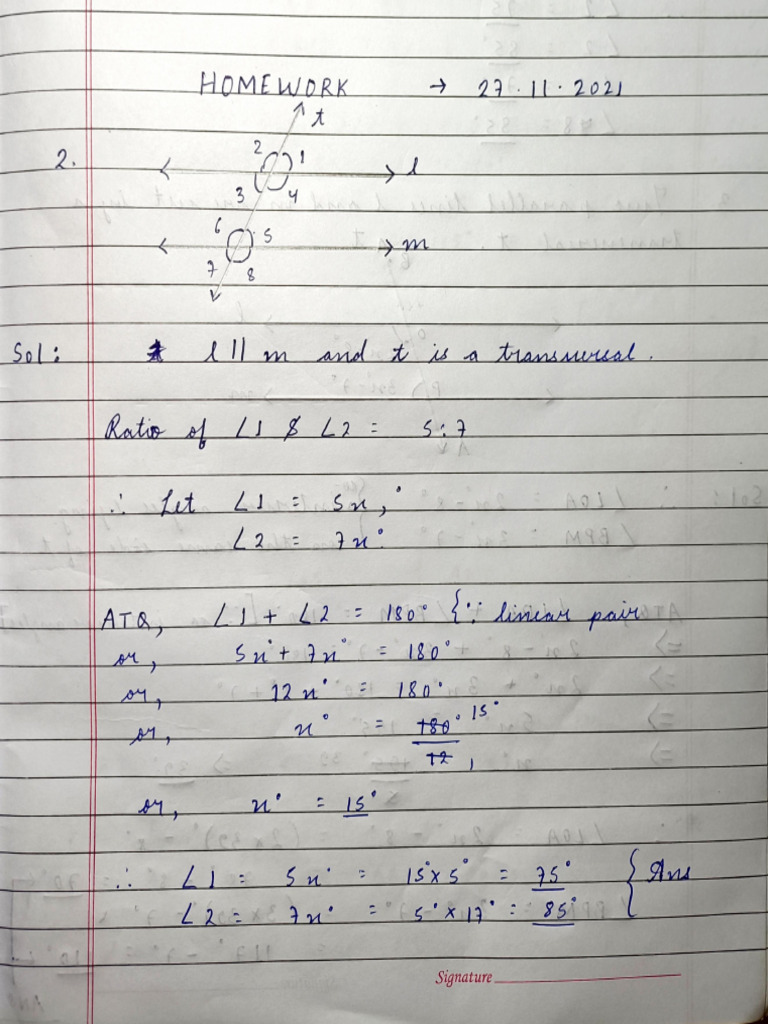 HOMEWORK → 27.11.2021
t
2.
2 1
l
3 4
6 5
m
7 8
Sol: l || m and t is a transversal.
Ratio of ∠1 & ∠2 = 5:7
∴ Let ∠1 = 5x,°
∠2 = 7x°
ATQ, ∠1 + ∠2 = 180° {∵ linear pair
or, 5x° + 7x° = 180°
or, 12x° = 180°
or, x° = 180° 15°
12,
or, x° = 15°
∴ ∠1 = 5x° = 15° x 5° = 75° } Ans
∠2 = 7x° = 5° x 17° = 85°
Signature